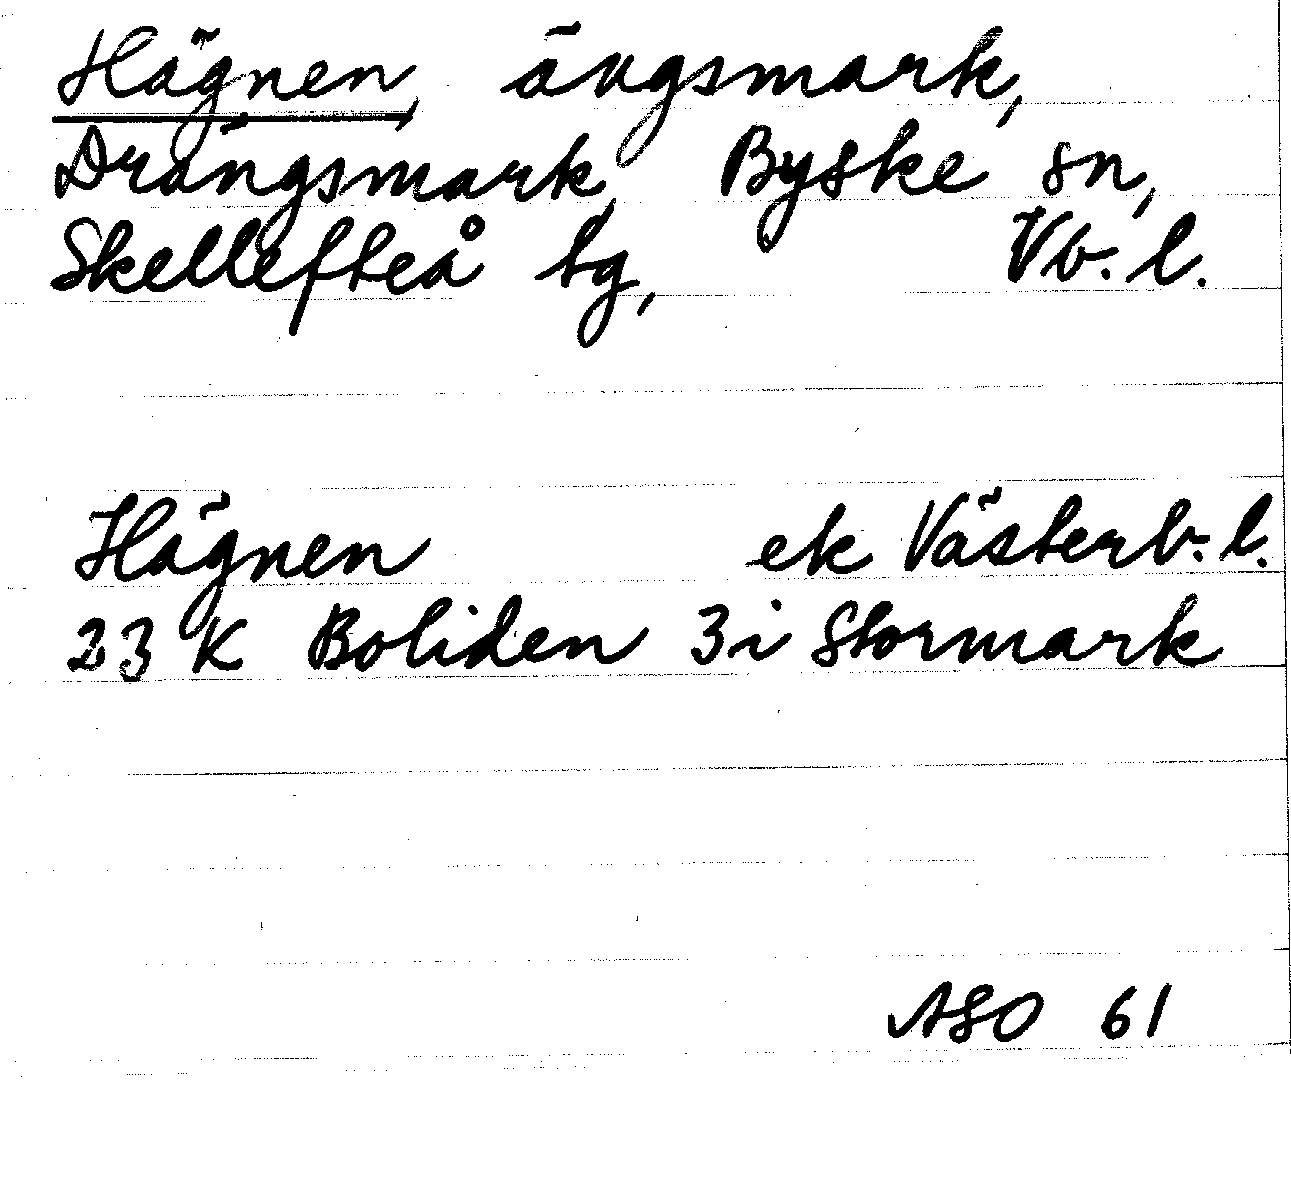 Hägnen, ängsmark,
Drängsmark, Byske sn,
Skellefteå tg, Vb. l.
Hägnen ek Västerb. l.
23 K Boliden 3i Stormark
ASO 61